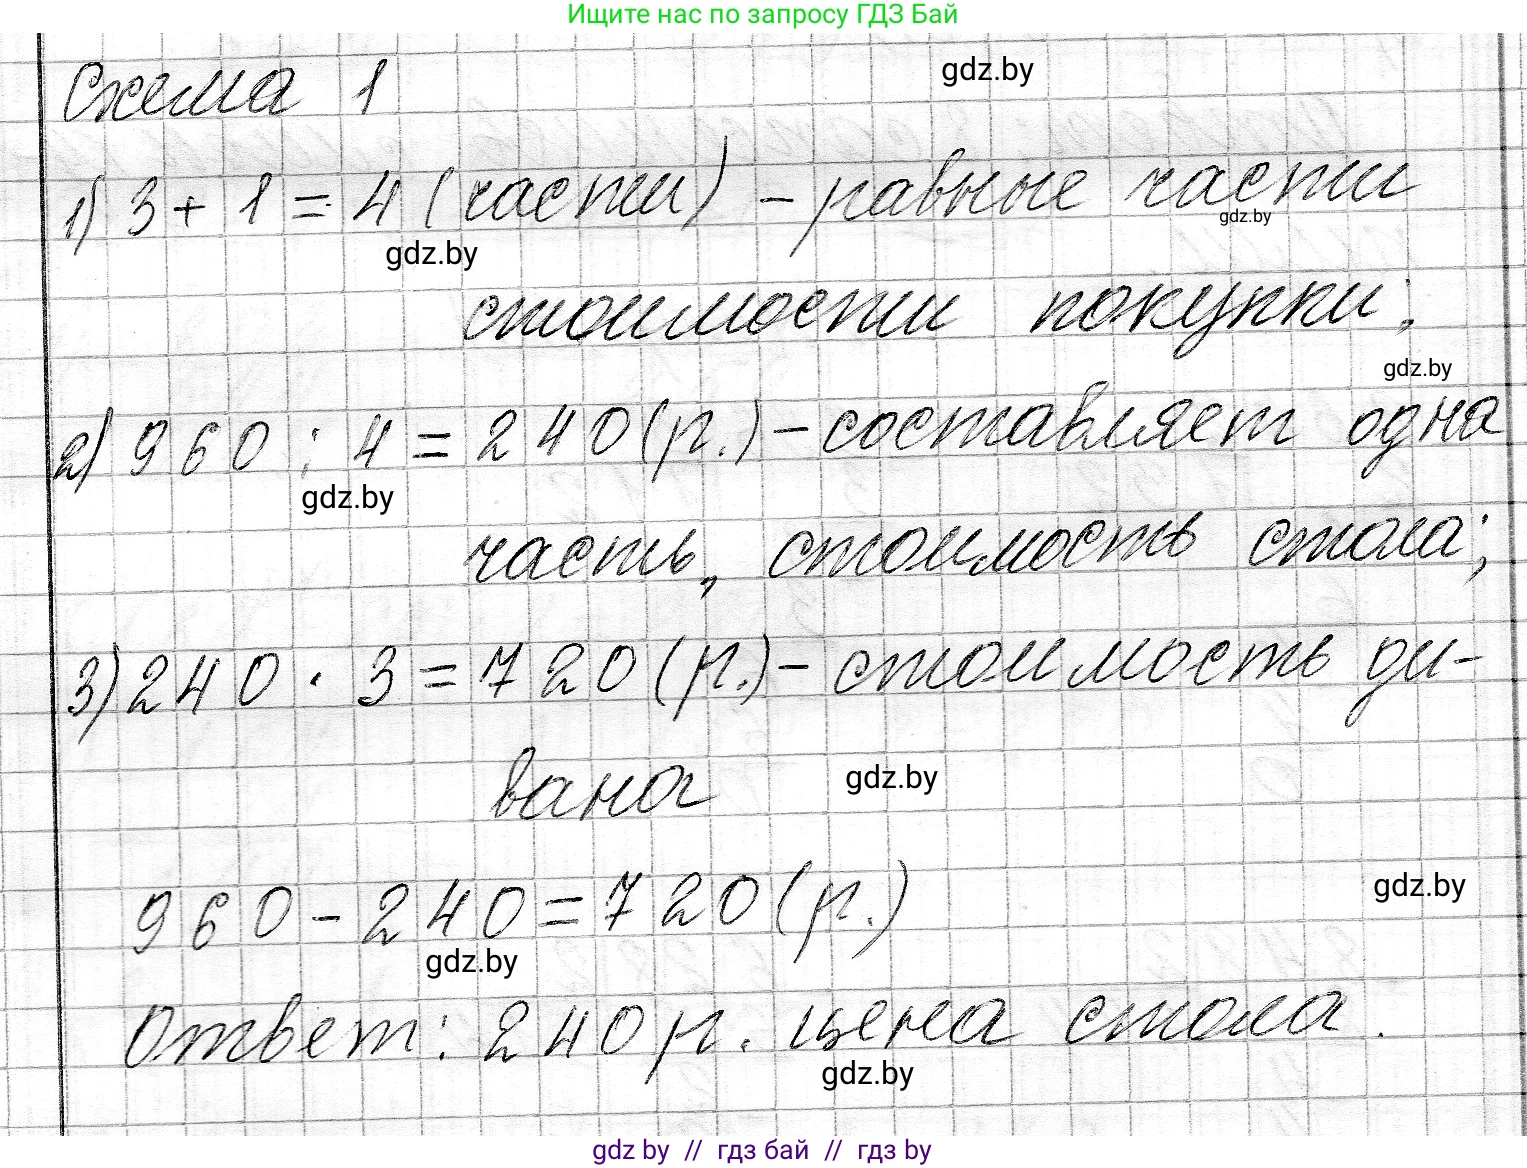 Ищите нас по запросу ГДЗ Бай
Схема 1
gdz.by
1) 3 + 1 = 4 (части) – равные части
gdz.by
gdz.by
стоимости покупки;
gdz.by
2) 960 : 4 = 240 (р.) – составляет одна
gdz.by
часть, стоимость стола;
3) 240 · 3 = 720 (р.) – стоимость ди-
вана
gdz.by
960 – 240 = 720 (р.)
gdz.by
gdz.by
Ответ: 240 р. цена стола.
gdz.by
gdz by // гдз бай // гдз by